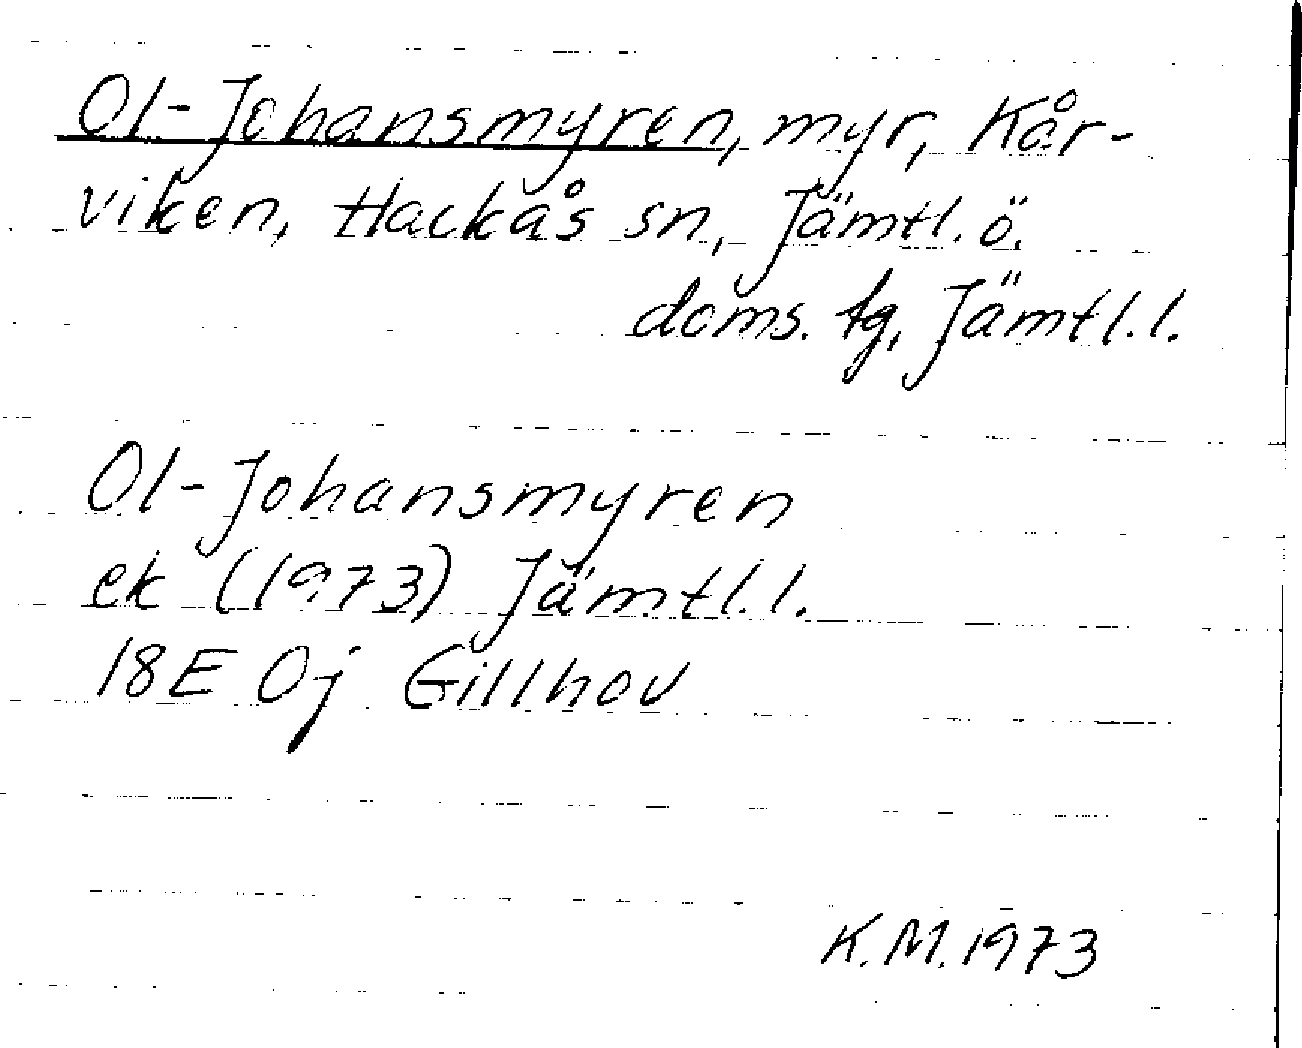 Ol-Johansmyren, myr, Kår-
viken, Hackås sn, Jämtl. ö.
doms. tg, Jämtl. l.
Ol-Johansmyren
ek (1973) Jämtl. l.
18E 0j Gillhov
K.M. 1973